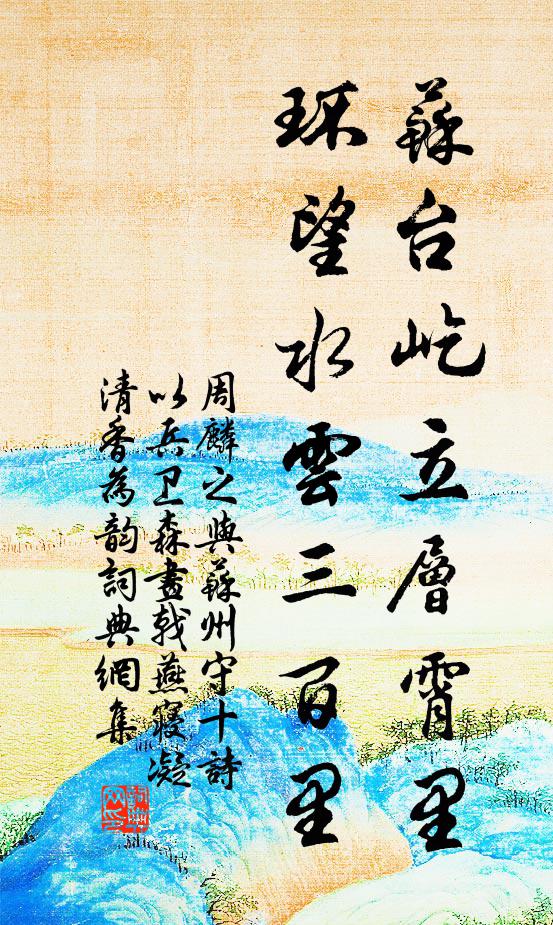 蘇台屹立層霄里
环望水雲三百里
周麟之與蘇州守十詩
以兵卫森畫戟燕寢凝
清香為韵詞典網集